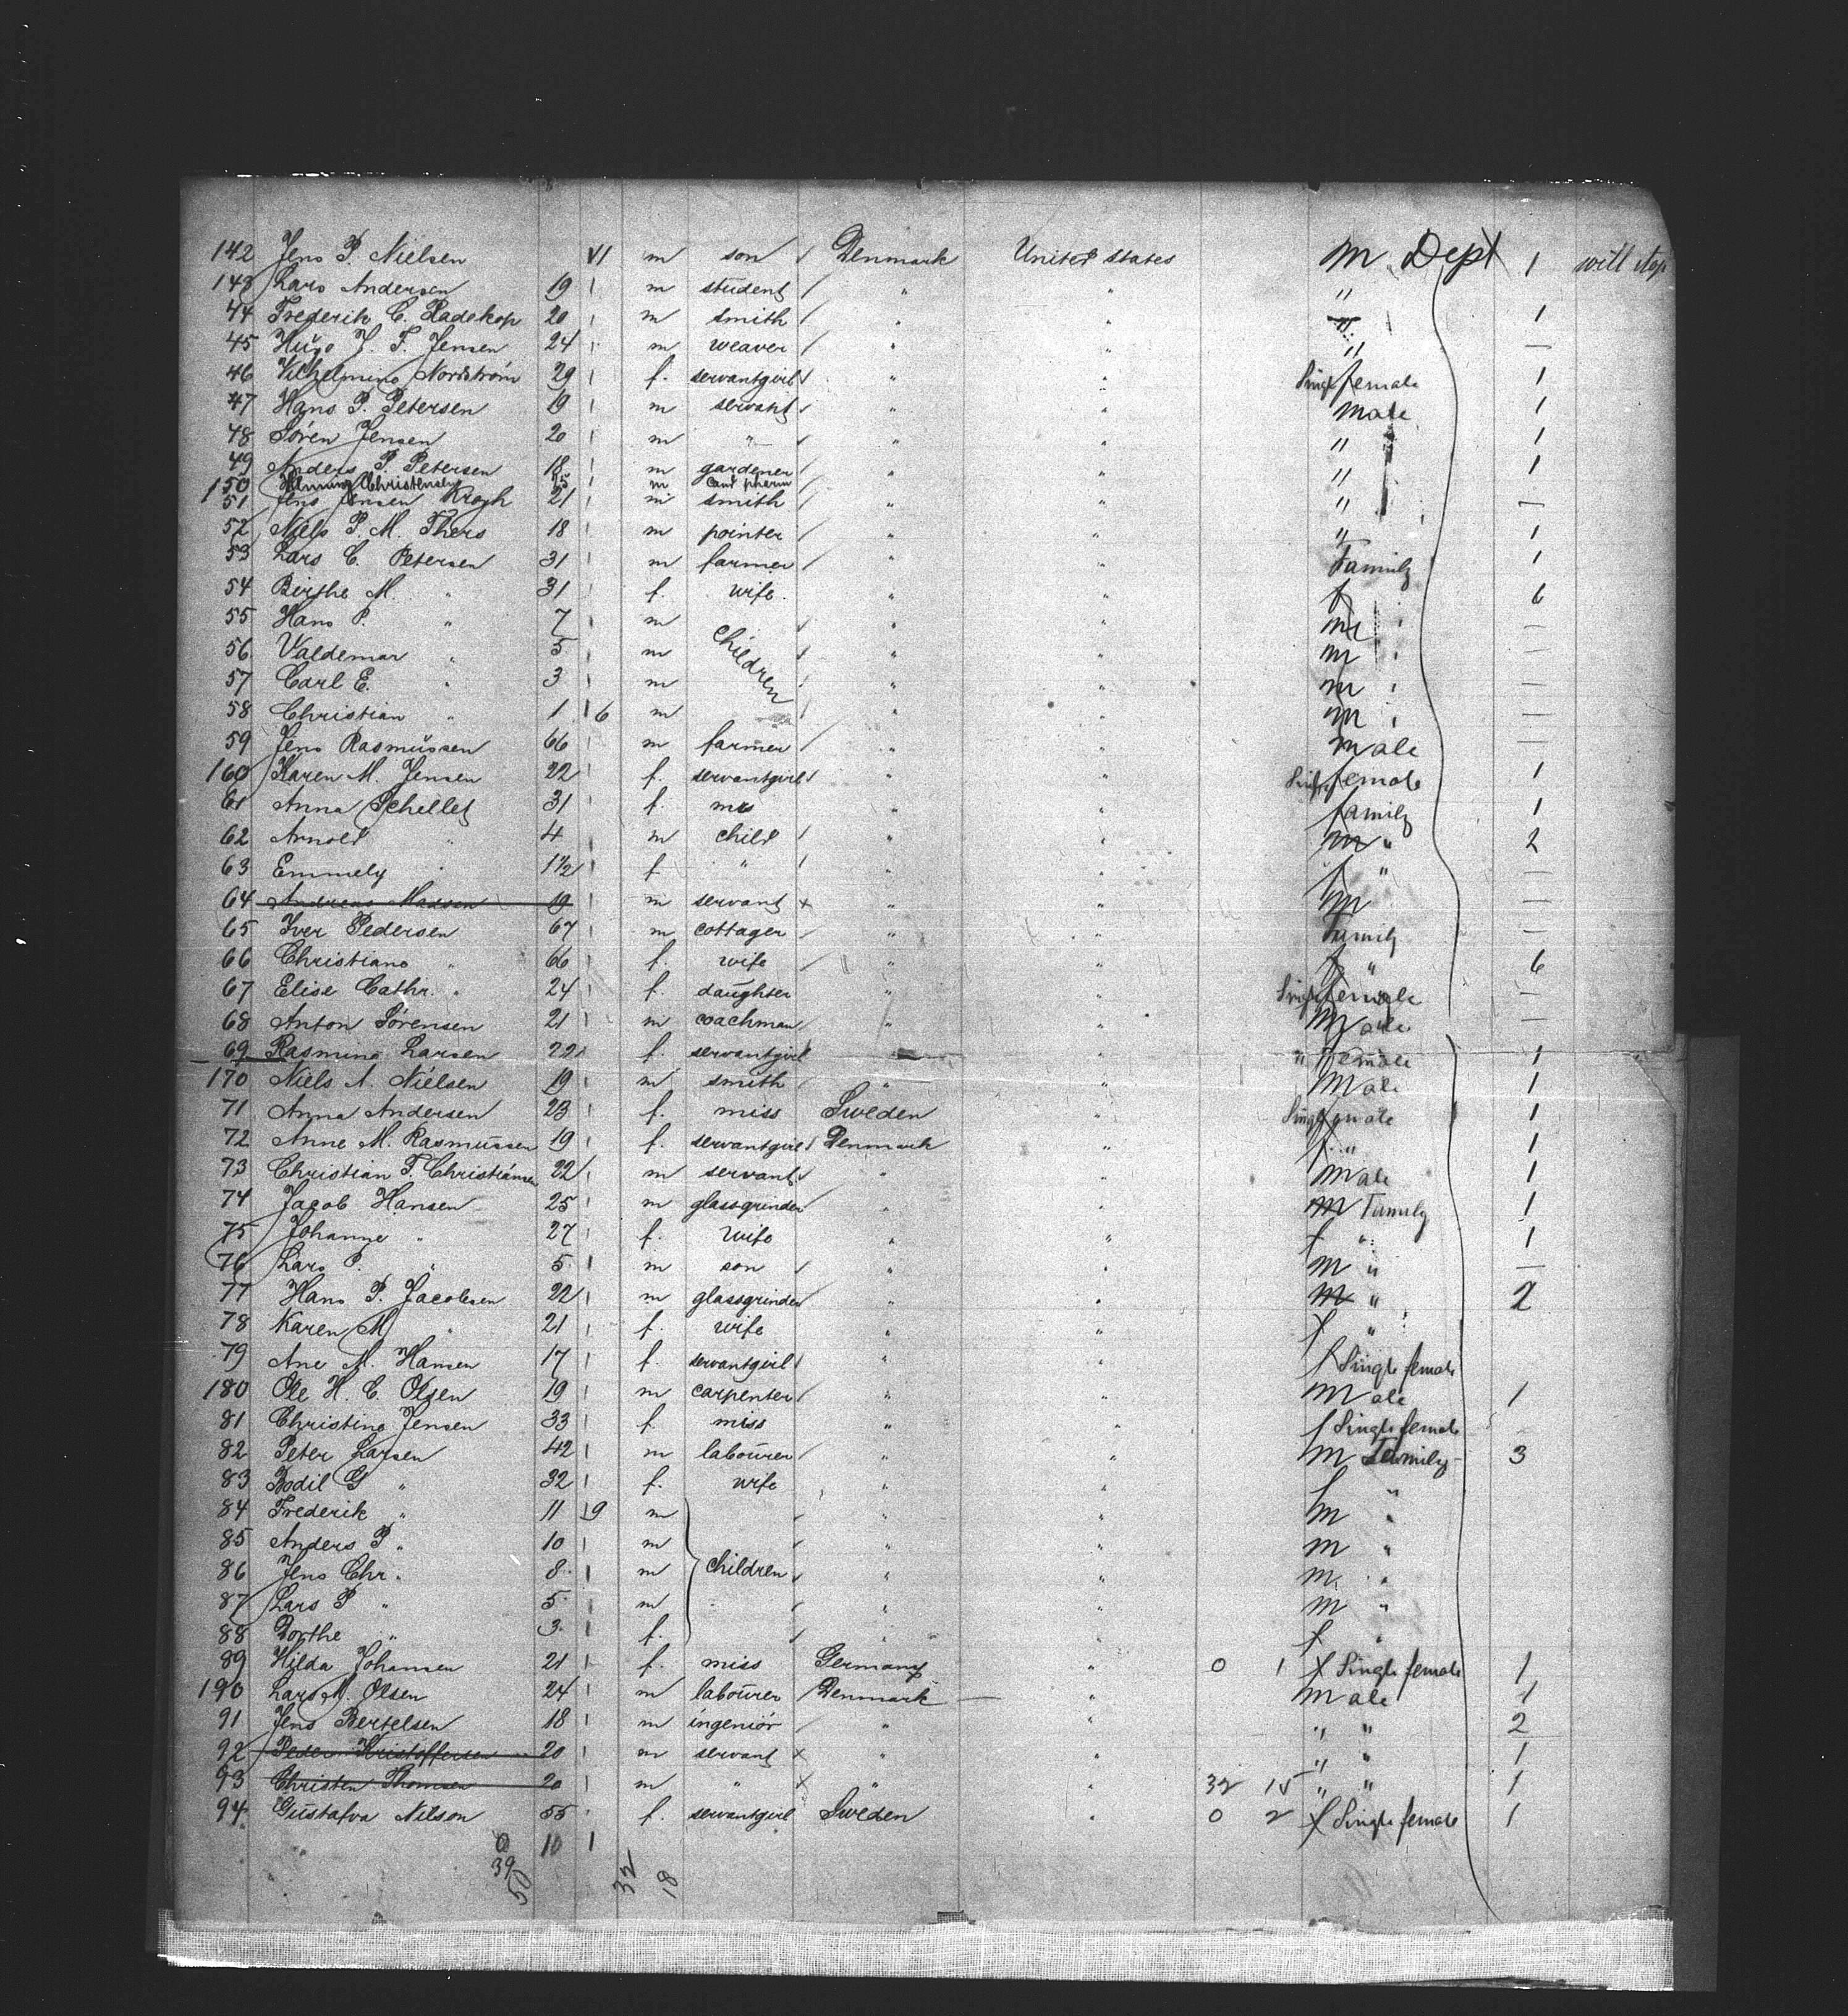 142 Jens P. Nielsen VI m son Denmark United States m Dept 1 will stop
143 Lars Andersen 19 m student " " "
44 Frederik C. Radekop 20 m smith " " " 1
45 Hugo J. F. Jensen 24 m weaver " " " —
46 Vilhelmine Nordstrøm 29 f. servantgirl " " Single female 1
47 Hans P. Petersen 19 m servant " " Male 1
48 Sören Jensen 20 m " " " " 1
49 Anders P. Petersen 18 m gardener " " " 1
150 Henning Christensen 25 m cand pharm
51 Jens Jensen Krogh 21 m smith " " " —
52 Niels P. M. Thers 18 m pointer " " " 1
53 Lars C. Petersen 31 m farmer " " Family 1
54 Birthe M. " 31 f. wife " " f 6
55 Hans P. " 7 m " " m —
56 Valdemar " 5 m Children " " m —
57 Carl E. " 3 m " " m —
58 Christian " 1 6 m " " m —
59 Jens Rasmussen 66 m farmer " " male —
160 Karen M. Jensen 22 f. servantgirl " " Single female 1
61 Anna Schellet 31 f. mrs " " family 1
62 Arnold " 4 m child " " m " 2
63 Emmely " 1 1/2 f " " " f " —
64 Andreas Madsen 19 m servant x " " m —
65 Iver Pedersen 67 m cottager " " Family —
66 Christiane " 66 f. wife " " f " 6
67 Elise Cathr. " 24 f. daughter " " Single female —
68 Anton Sörensen 21 m coachman " " Male —
69 Rasmine Larsen 22 f. servantgirl " " " female 1
170 Niels A. Nielsen 19 m smith " " Male 1
71 Anna Andersen 23 f. miss Sweden " Single female 1
72 Anne M. Rasmussen 19 f. servantgirl Denmark " f " 1
73 Christian F. Christiansen 22 m servant " " Male 1
74 Jacob Hansen 25 m glassgrinder " " m Family 1
75 Johanne " 27 f. wife " " f " 1
76 Lars P. " 5 m son " " m " —
77 Hans P. Jacobsen 22 m glassgrinder " " m " 2
78 Karen M " 21 f. wife " " f "
79 Ane M. Hansen 17 f. servantgirl " " f Single female
180 Ole H. C. Olsen 19 m carpenter " " Male 1
81 Christine Jensen 33 f. miss " " f Single female
82 Peter Larsen 42 m labourer " " m Family 3
83 Bodil G " 32 f. wife " " f "
84 Frederik " 11 9 m " " m "
85 Anders P " 10 m " " m "
86 Jens Chr. " 8 m children " " m "
87 Lars P " 5 m " " m "
88 Dorthe " 3 f. " " f "
89 Hilda Johansen 21 f. miss Germany " 0 1 f Single female 1
190 Lars M. Olsen 24 m labourer Denmark " male 1
91 Jens Bertelsen 18 m ingeniör " " " " 2
92 Peder Kristoffersen 20 m servant x " " " " 1
93 Christen Thomsen 20 m " x " " 32 15 " " 1
94 Gustafva Nilson 55 f. servantgirl Sweden " 0 2 f Single female 1
0 10 1
39
50 32 18